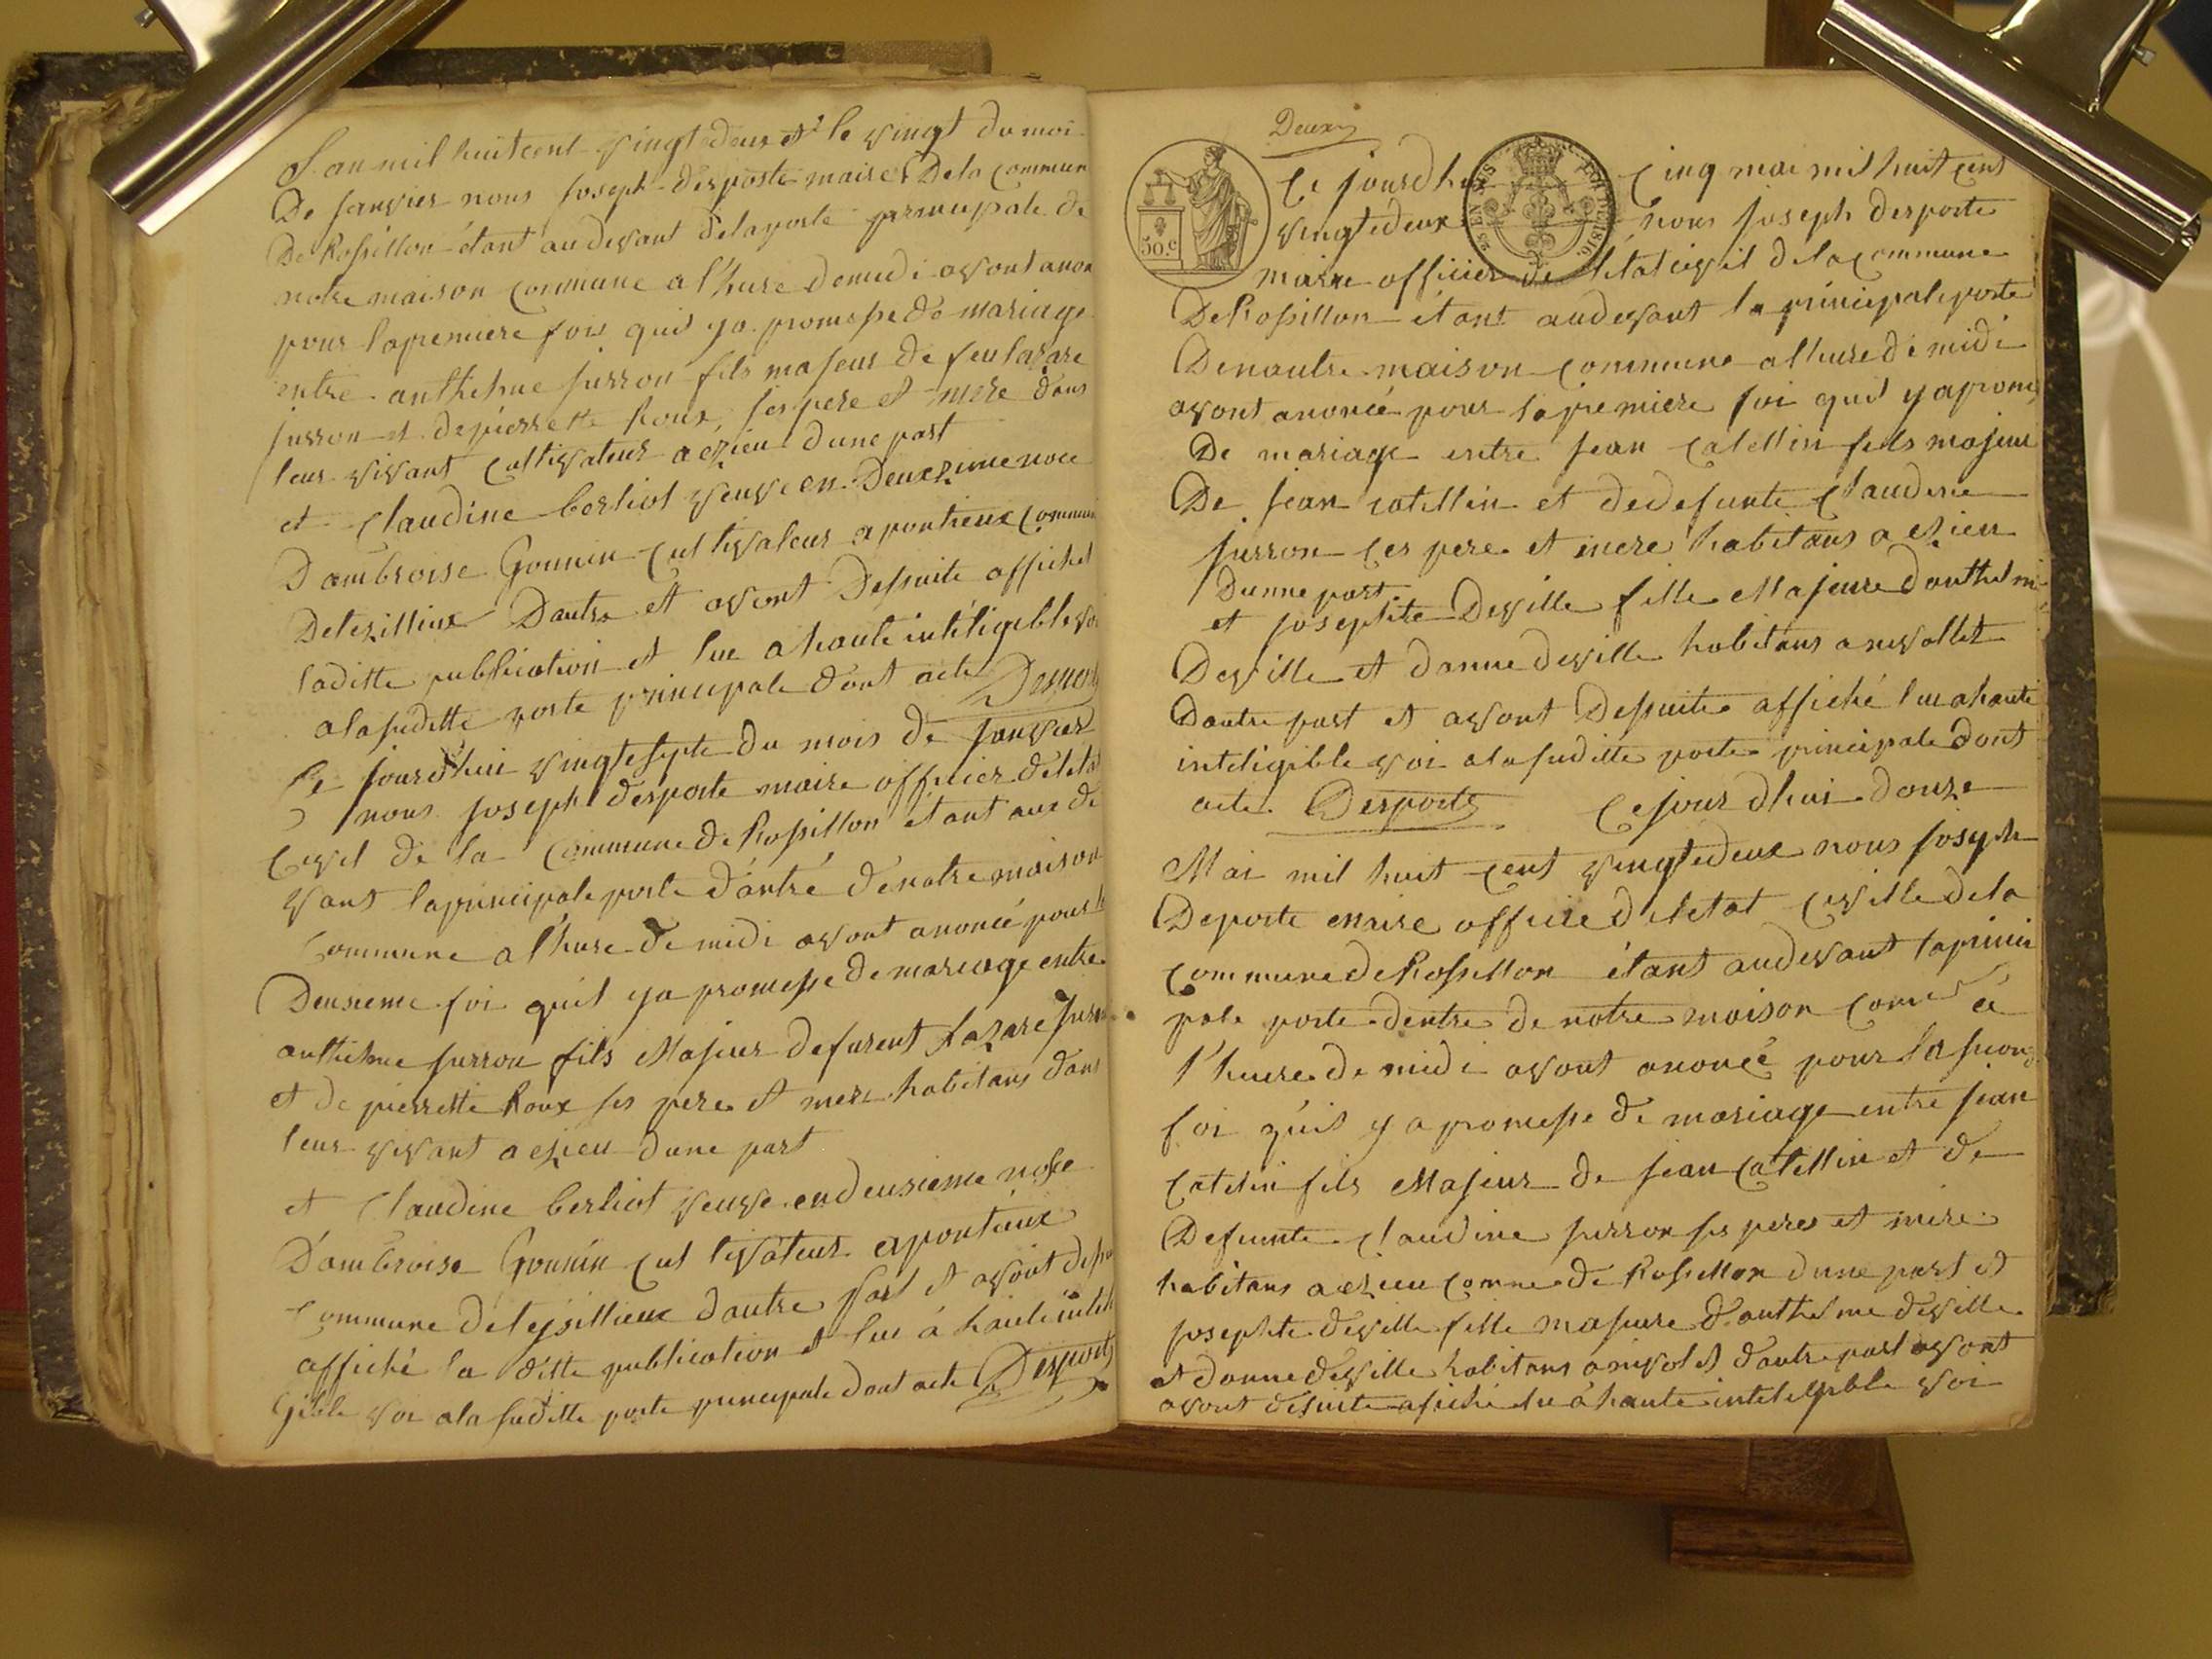 L'an mil huit cent vingt edeux et le vingt du moi
De janvier nous joseph desporte maire De la commun
De Rossillon étant au devant de la porte principale de
notre maison commune a l'hure de midi avont anon
pour la premiere fois quil ya promesse de mariage
entre anthelme jurron fils majeur de feu lazare
jurron et de pierrette Roux ses pere et mere dans
leur vivant cultivateur a ezieu dune part
et claudine berliot veuve en Deuxzime noce
D'ambroise Gonnin cultivateur a pontieux commun
Detezillieux Dautre et avont Dessuite affiché
laditte publication et lue a haute intéligible voi
a la suditte porte principale dont acte Desport
Ce jourdhui vingtesepte du mois de janvier
nous joseph desporte maire officier deléta
civil de la commune de Rossillon étant aux de
vant la principale porte d'antré de notre maison
commune a l'hure de midi avont anoncé pour la
Deusieme foi quil ya promesse de mariage entre
anthelme jurron fils Majeur defurent Lazare jurron
et de pierrette Roux ses pere et mere habitans dans
leur vivant a ezieu dune part
et Claudine berliot veuve en deusieme nosse
D'ambroise Gonnin cultivateur a pontieux
commune de teysillieux dautre part et avont dessu
affiché la ditte publication et lue á haute intéli
gible voi a la suditte porte principale dont acte Desport
Deux
50.c
25 EN SUS
Ce jourdhui cinq mai mil huit cent
vingtedeux nous joseph desporte
maire officier de létat civil de la commune
De Rossillon étant audevant la principale porte
De nautre maison commune a lhure de midi
avont anoncé pour la premiere foi quil y a prome
De mariage entre jean catellin fils majeur
De jean catellin et de defunte claudine
jurron ces pere et mere habitans a ezieu
Dunne part
et josephte Deville fille Majeure danthelm
Deville et danne deville habitans a nivollet
Dautre part et avont Dessuite affiché lu a haute
inteligible voi a la suditte porte principale dont
acte. Desporte Ce jour dhui douze
Mai mil huit cent vingtedeux nous joseph
Deporte maire officie de letat civille de la
commune de Rossillon étant audevant la princi
pale porte dentre de notre maison comne á
l'heure de midi avont anoncé pour la second
foi qu'il y a promesse de mariage entre jean
catelin fils Majeur de jean catellin et de
Defunte claudine jurron ses peres et mere
habitans a ezieu comne de Rossillon dune part et
josephte deville fille majeure d'anthelme deville
et danne deville habitans a nivolet dautre part avont
avont desuite afiché lu á haute inteligible voi